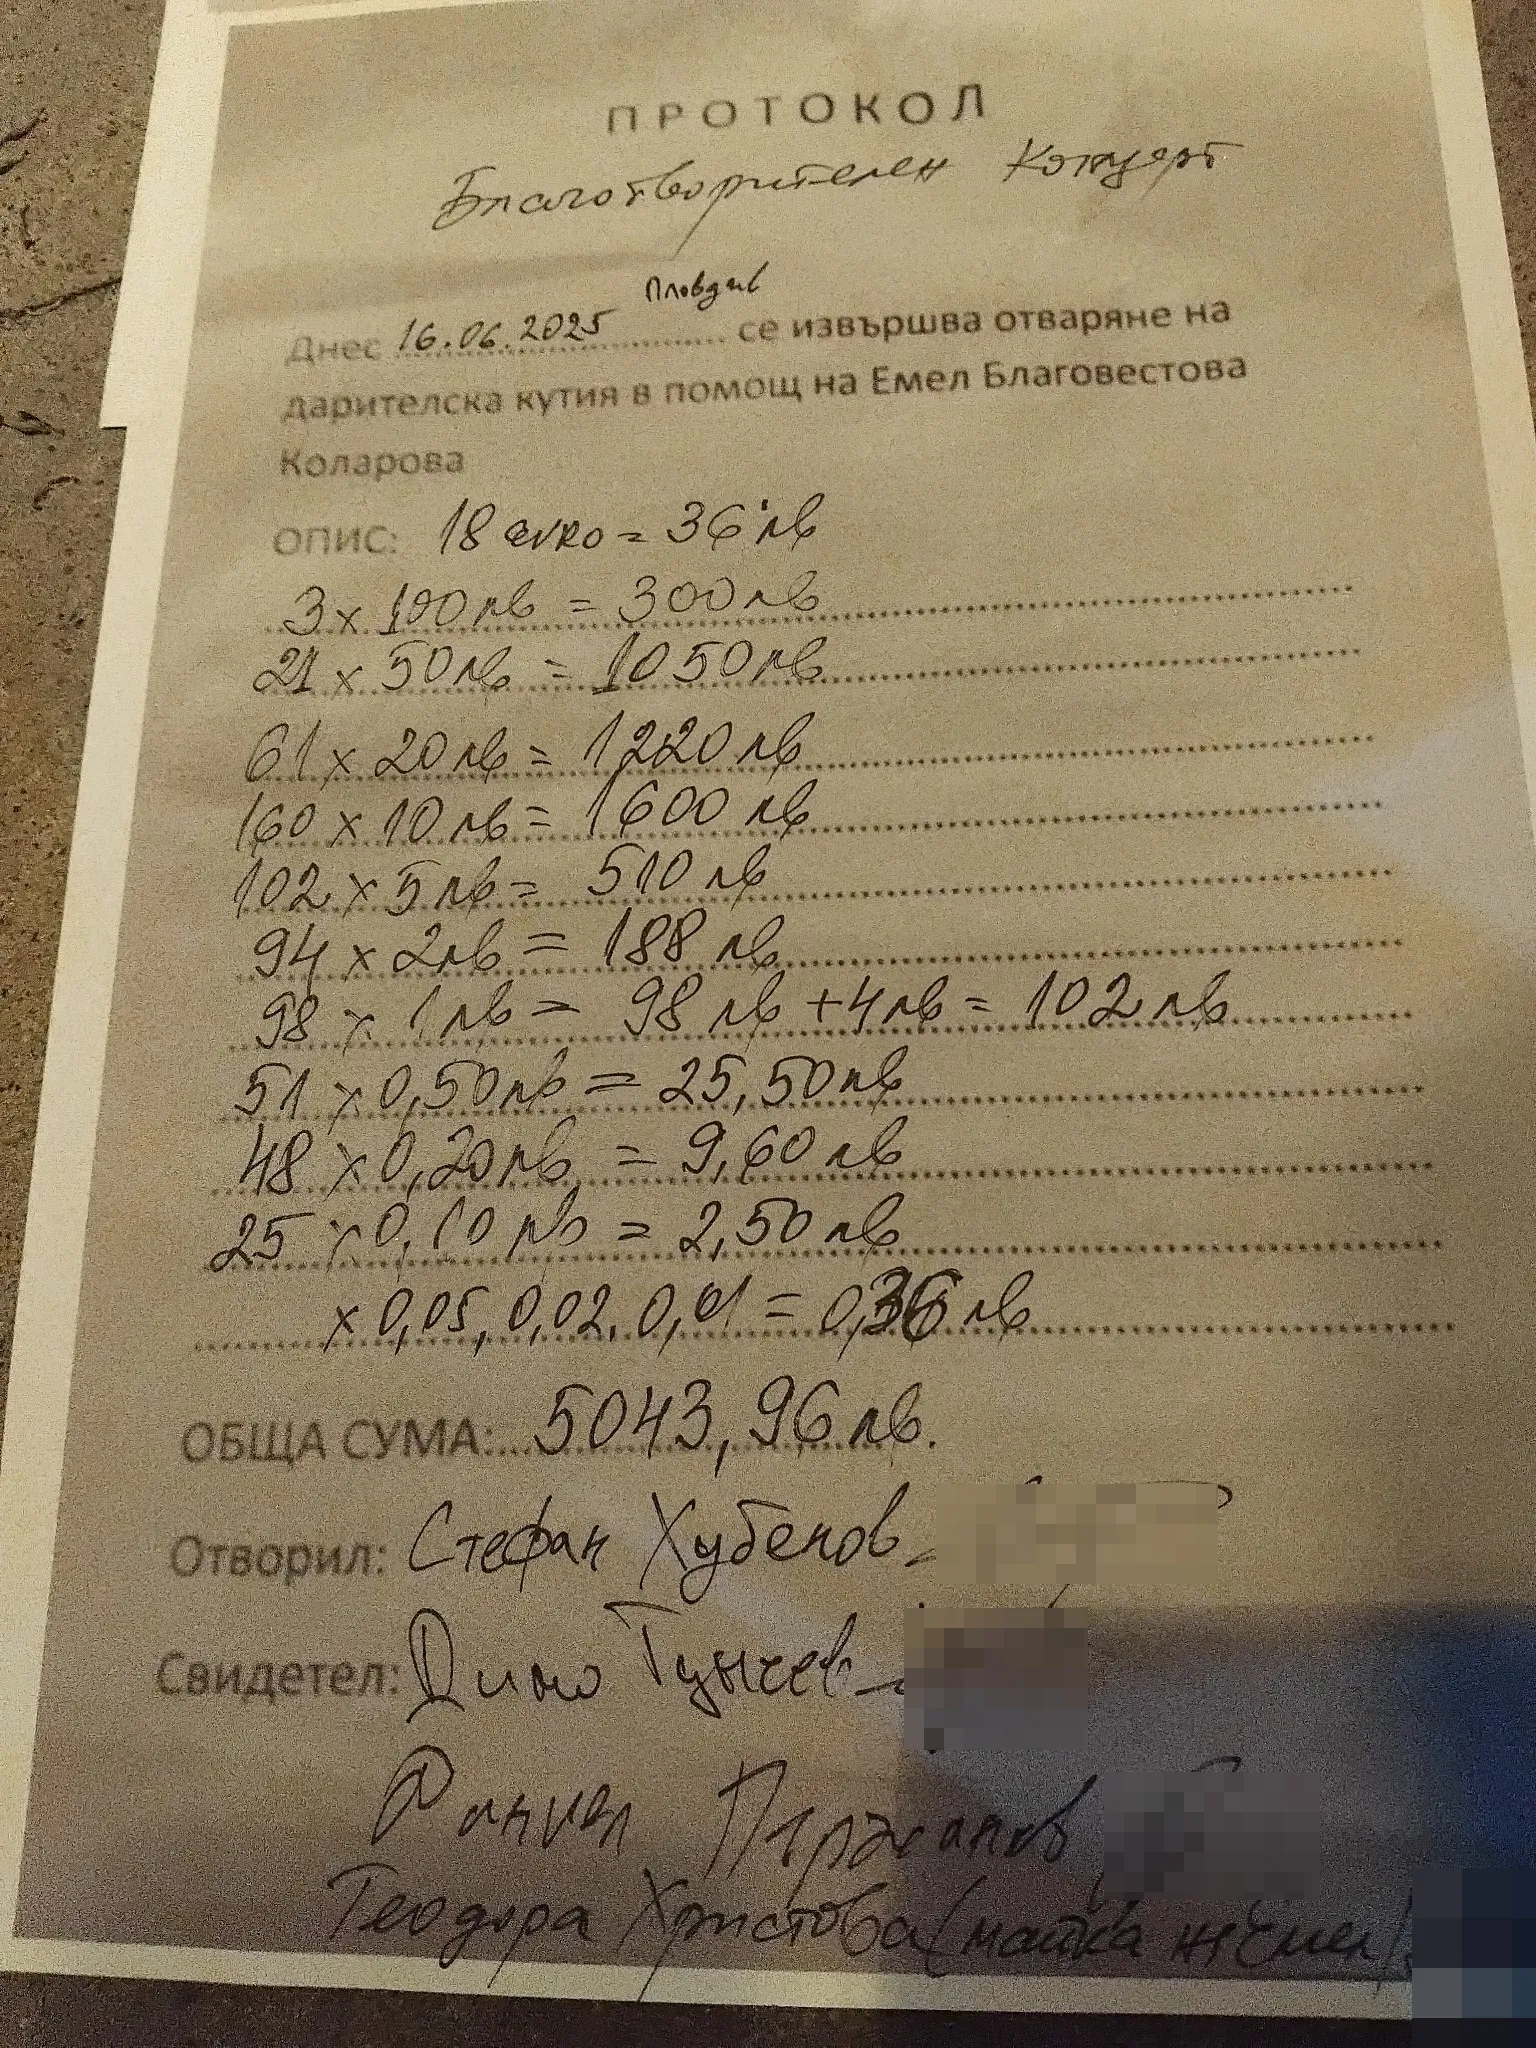 ПРОТОКОЛ
Благотворителен Концерт
Пловдив
Днес 16.06.2025 се извършва отваряне на
дарителска кутия в помощ на Емел Благовестова
Коларова
ОПИС: 18 euro = 36 лв
3 x 100 лв = 300 лв
21 x 50 лв = 1050 лв
61 x 20 лв = 1220 лв
160 x 10 лв = 1600 лв
102 x 5 лв = 510 лв
94 x 2 лв = 188 лв
98 x 1 лв = 98 лв + 4 лв = 102 лв
51 x 0,50 лв = 25,50 лв
48 x 0,20 лв = 9,60 лв
25 x 0,10 лв = 2,50 лв
x 0,05, 0,02, 0,01 = 0,36 лв
ОБЩА СУМА: 5043,96 лв.
Отворил: Стефан Хубенов
Свидетел: Димо
Теодора Христова (майка на Емел)